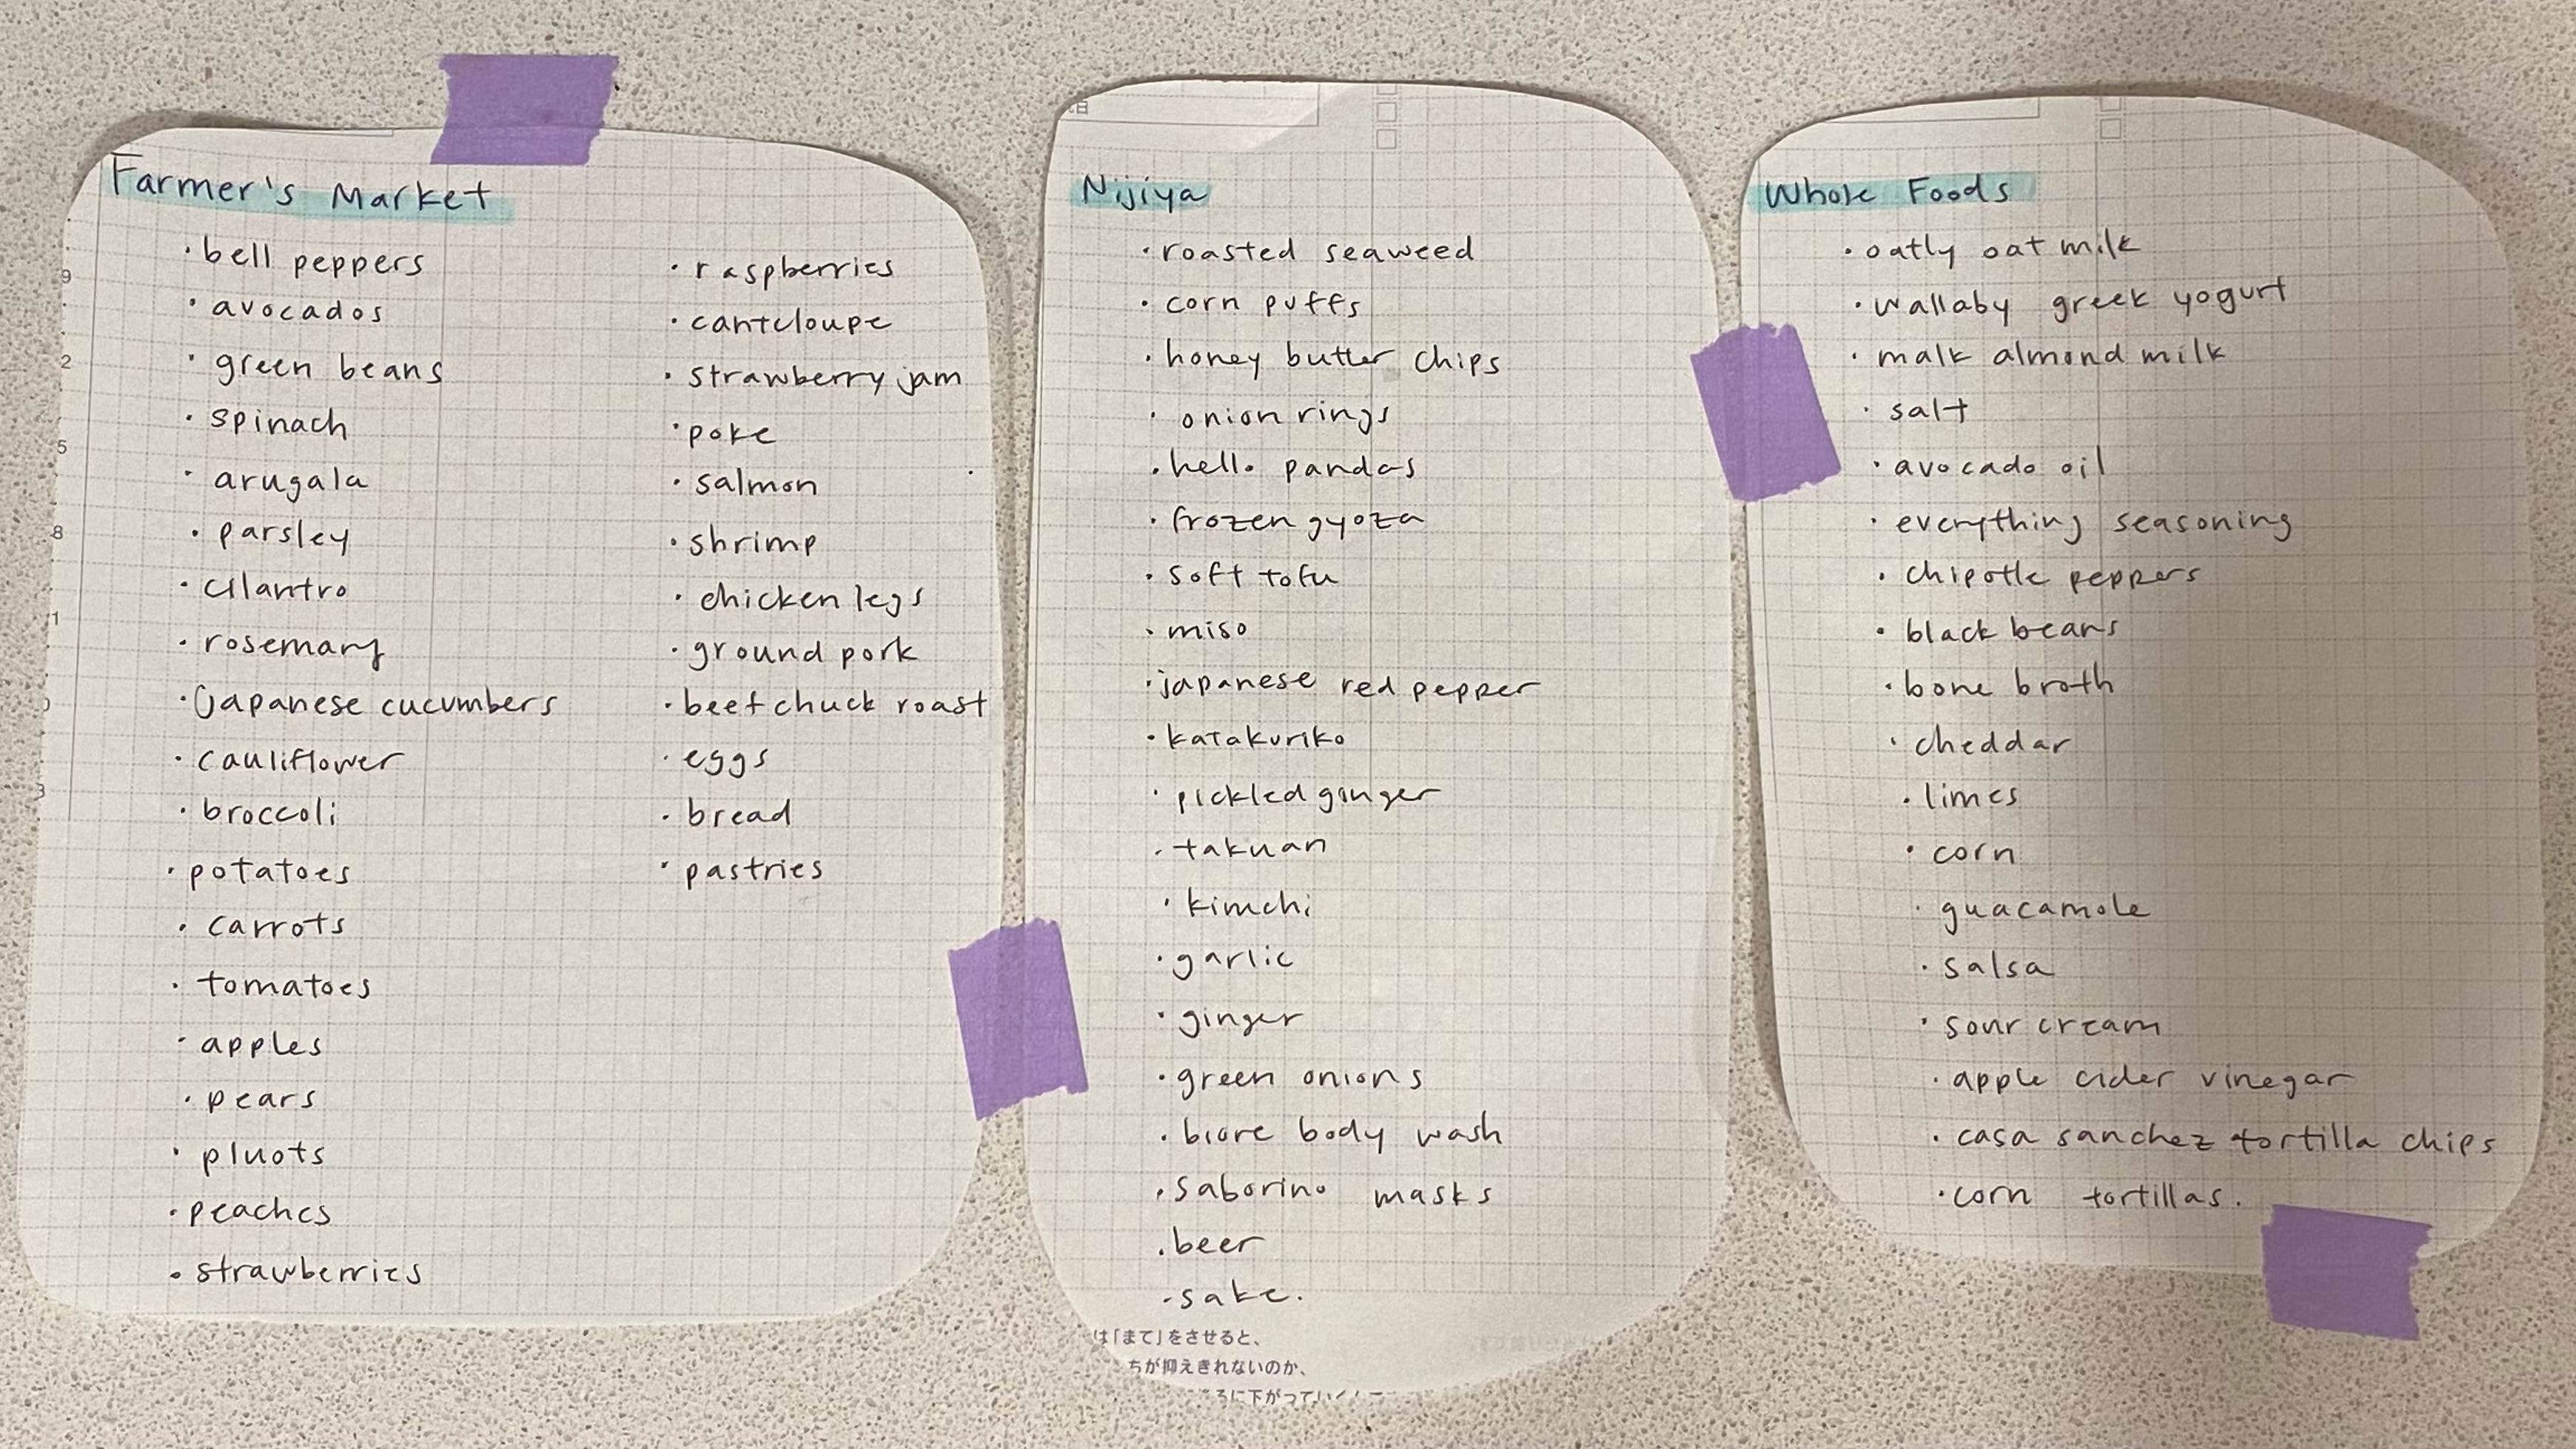 Farmer's Market
· bell peppers
· avocados
· green beans
· spinach
· arugala
· parsley
· cilantro
· rosemary
· japanese cucumbers
· cauliflower
· broccoli
· potatoes
· carrots
· tomatoes
· apples
· pears
· pluots
· peaches
· strawberries
· raspberries
· canteloupe
· strawberry jam
· poke
· salmon
· shrimp
· chicken legs
· ground pork
· beef chuck roast
· eggs
· bread
· pastries
9
2
5
8
1
3
日
Nijiya
· roasted seaweed
· corn puffs
· honey butter chips
· onion rings
· hello pandas
· frozen gyoza
· soft tofu
· miso
· japanese red pepper
· katakuriko
· pickled ginger
· takuan
· kimchi
· garlic
· ginger
· green onions
· biore body wash
· saborino masks
· beer
· sake.
は「まて」をさせると、
ちが抑えきれないのか、
ろに下がってい
Whole Foods
· oatly oat milk
· wallaby greek yogurt
· malk almond milk
· salt
· avocado oil
· everything seasoning
· chipotle peppers
· black beans
· bone broth
· cheddar
· limes
· corn
· guacamole
· salsa
· sour cream
· apple cider vinegar
· casa sanchez tortilla chips
· corn tortillas.